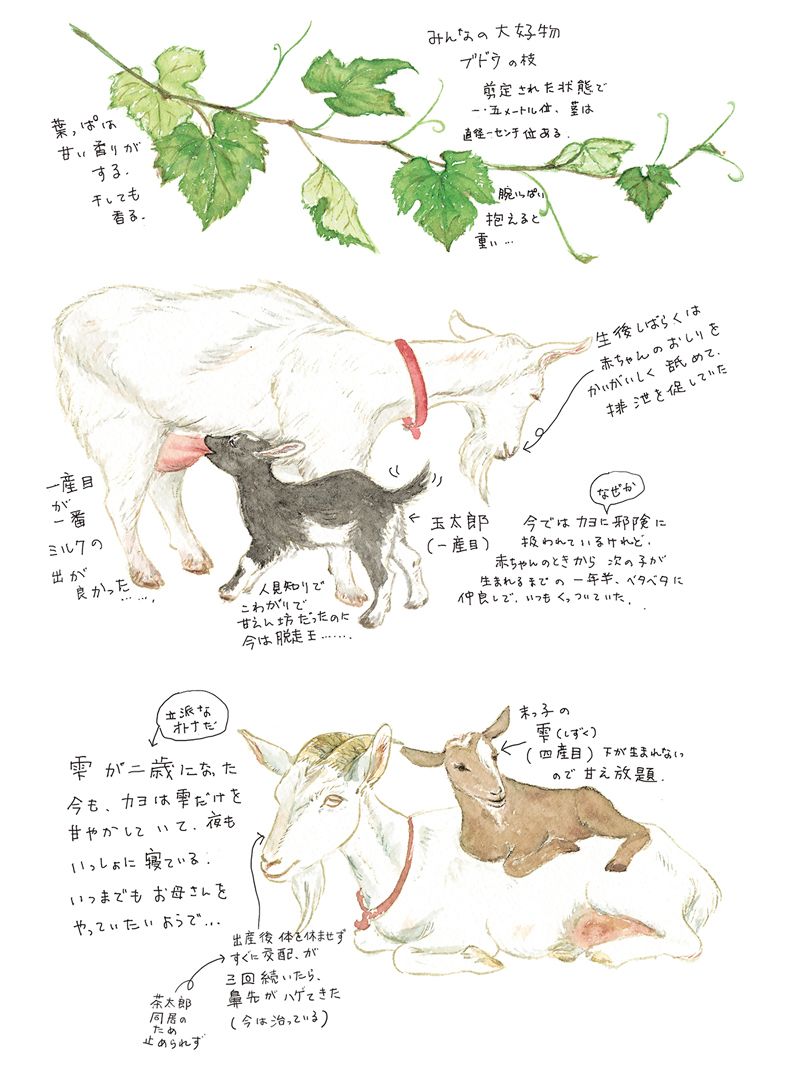 みんなの大好物
ブドウの枝
剪定された状態で
一・五メートル位、茎は
直径一センチ位ある.
葉っぱは
甘い香りが
する.
干しても
香る.
腕いっぱい
抱えると
重い…
生後しばらくは
赤ちゃんのおしりを
かいがいしく舐めて、
排泄を促していた
一産目
が
一番
ミルクの
出が
良かった……
玉太郎
(一産目)
人見知りで
こわがりで
甘えん坊だったのに
今は脱走王……
なぜか
今ではカヨに邪険に
扱われているけれど、
赤ちゃんのときから次の子が
生まれるまでの一年半、ベタベタに
仲良しで、いつもくっついていた.
立派な
オトナだ
雫が二歳になった
今も、カヨは雫だけを
甘やかしていて、夜も
いっしょに寝ている.
いつまでもお母さんを
やっていたいようで…
末っ子の
雫(しずく)
(四産目)下が生まれない
ので甘え放題.
出産後体を休ませず
すぐに交配、が
三回続いたら、
鼻先がハゲてきた
(今は治っている)
茶太郎
同居の
ため
止められず